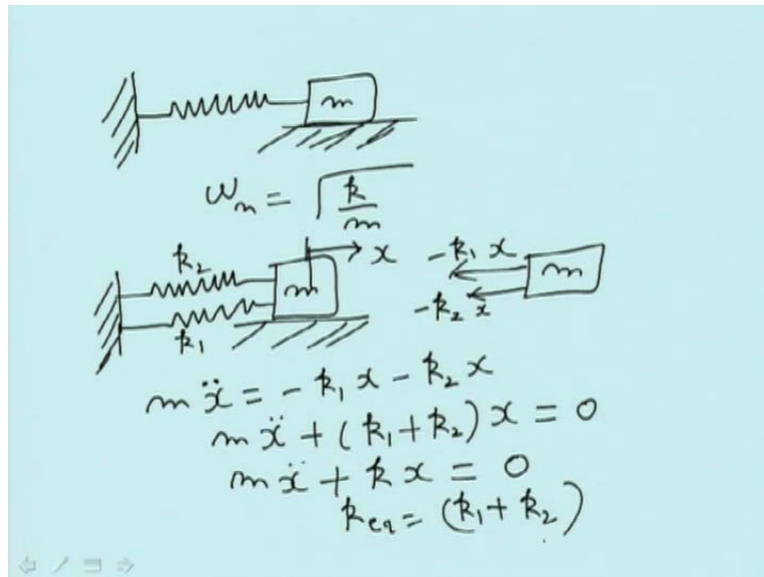 m
ωn = √k/m
k2
x
-k1 x
m
m
-k2 x
k1
mẍ = -k1x - k2x
mẍ + (k1+k2)x = 0
mẍ + kx = 0
keq = (k1+k2)